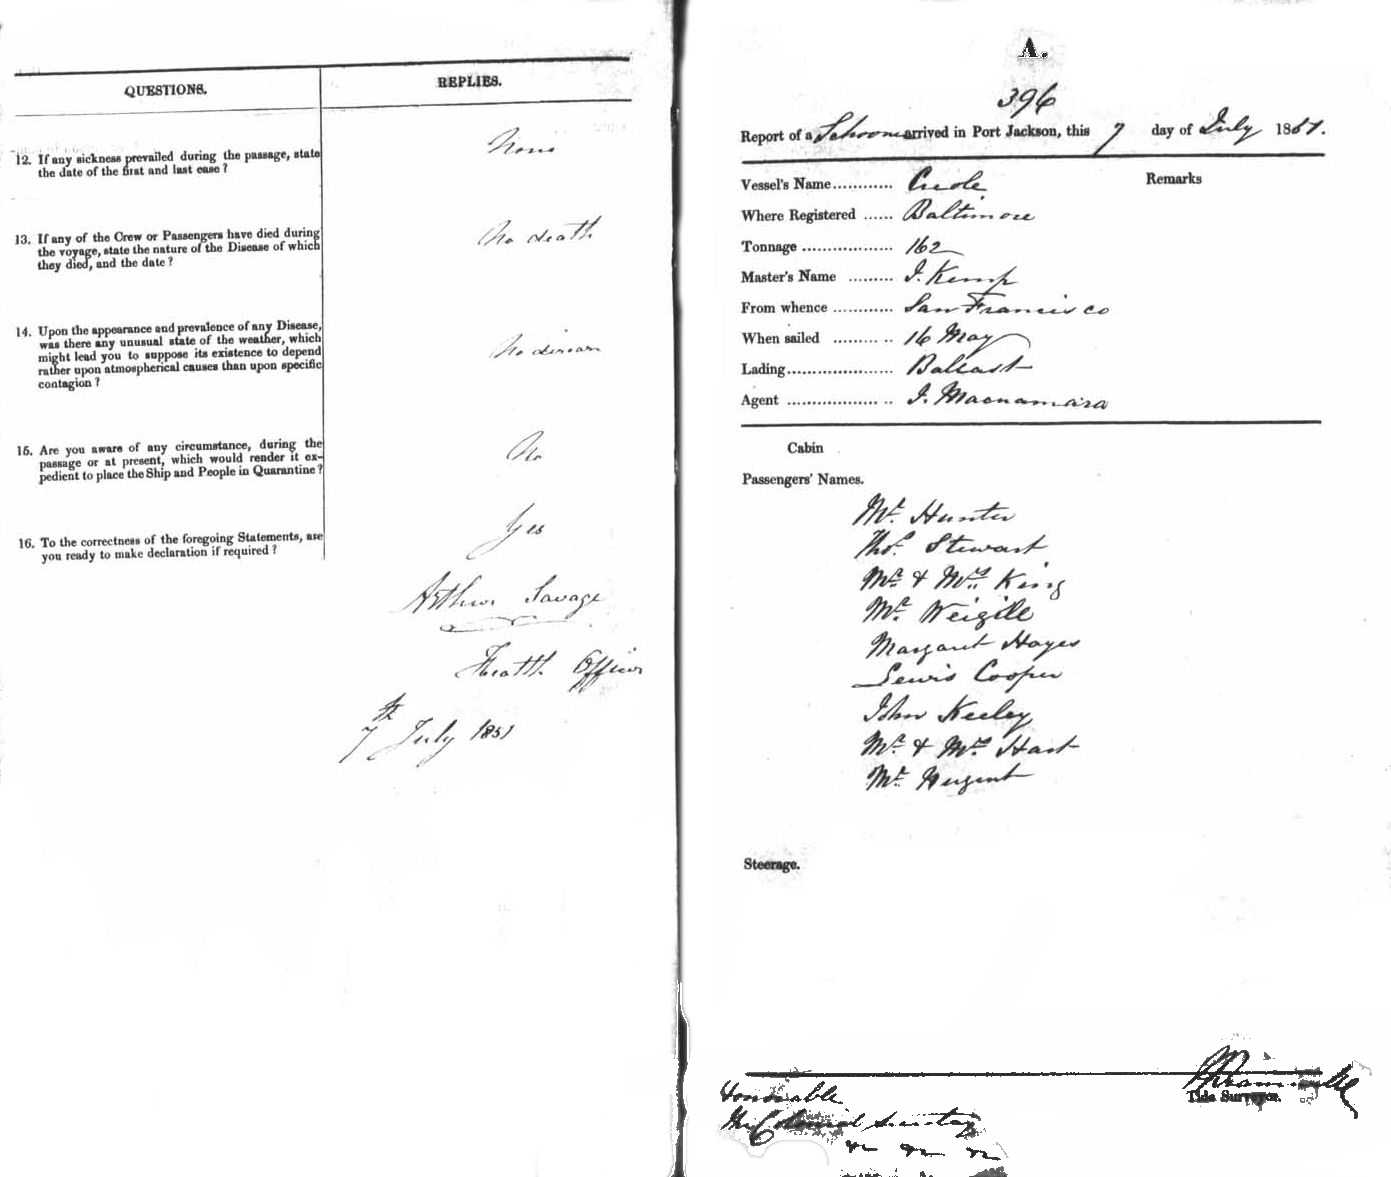 QUESTIONS.
REPLIES.
12. If any sickness prevailed during the passage, state
the date of the first and last case ?
None
13. If any of the Crew or Passengers have died during
the voyage, state the nature of the Disease of which
they died, and the date ?
No death
14. Upon the appearance and prevalence of any Disease,
was there any unusual state of the weather, which
might lead you to suppose its existence to depend
rather upon atmospherical causes than upon specific
contagion ?
No disease
15. Are you aware of any circumstance, during the
passage or at present, which would render it ex-
pedient to place the Ship and People in Quarantine ?
No
16. To the correctness of the foregoing Statements, are
you ready to make declaration if required ?
Yes
Arthur Savage
Health Officer
7th July 1851
A.
396
Report of a Schooner arrived in Port Jackson, this 7 day of July 1851.
Vessel's Name............ Creole
Remarks
Where Registered ...... Baltimore
Tonnage .................. 162
Master's Name ......... J. Kemp
From whence ............ San Francisco
When sailed ......... .. 16 May
Lading..................... Ballast
Agent .................. .. J. Macnamara
Cabin
Passengers' Names.
Mr. Hunter
Thos. Stewart
Mr. & Mrs. King
Mr. Weigille
Margaret Hayes
Lewis Cooper
John Keeley
Mr. & Mrs. Hart
Mr. Nugent
Steerage.
Tide Surveyor.
Honorable
The Colonial Secretary